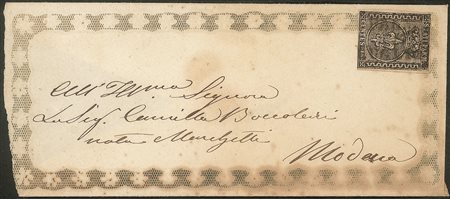 All' Ill.ma Signora
La Sig. Camilla Boccolari
nata Marchetti
Modena